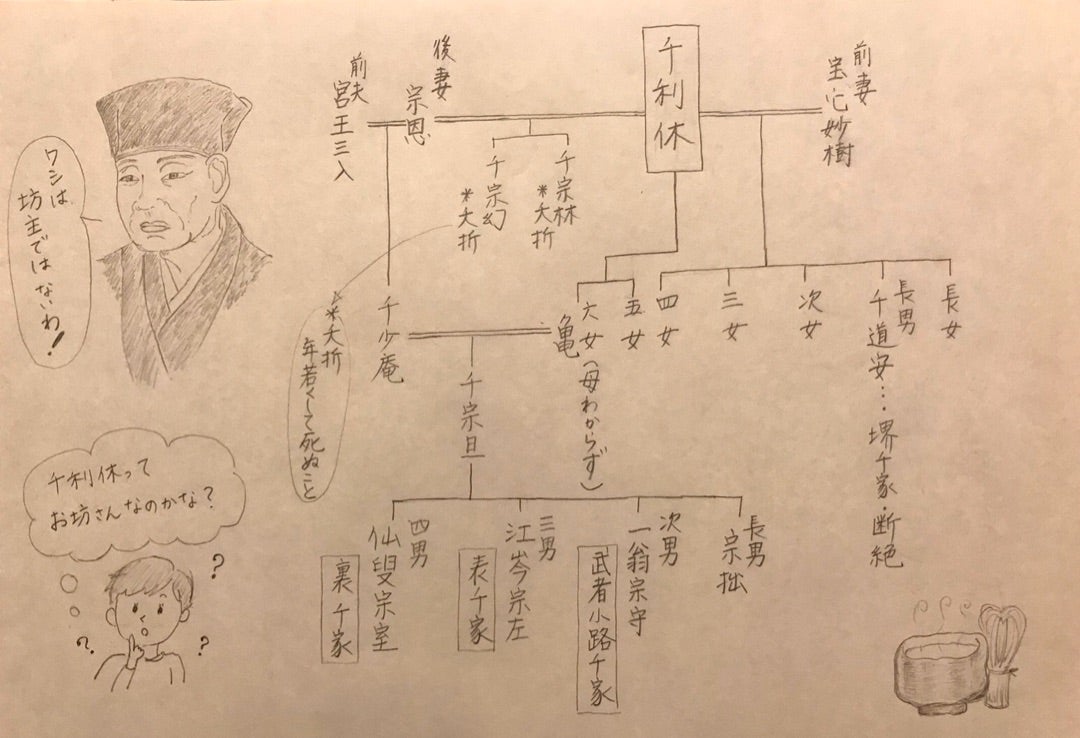 千利休
前妻
宝心妙樹
後妻
宗恩
前夫
宮王三入
千宗林
*夭折
千宗幻
*夭折
長女
長男
千道安…堺千家・断絶
次女
三女
四女
五女
六女(母わからず)
亀
千少庵
千宗旦
長男
宗拙
次男
一翁宗守
武者小路千家
三男
江岑宗左
表千家
四男
仙叟宗室
裏千家
*夭折
年若くして死ぬこと
ワシは
坊主ではないわ!
千利休って
お坊さんなのかな?
?
?
?